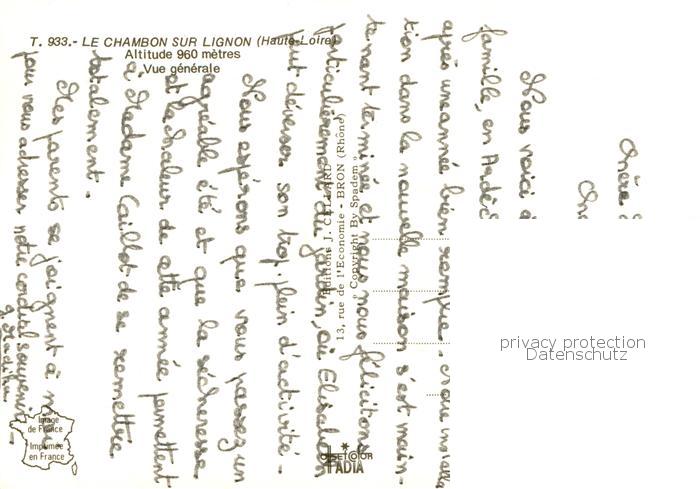 T. 933.- LE CHAMBON SUR LIGNON (Haute-Loire)
Altitude 960 mètres
Vue générale
Editions J. CELLARD
13, rue de l'Economie - BRON (Rhône)
" Copyright By Spadem "
Chère
Nous voici
famille, en Ardè
après une année bien remplie. Notre
tion dans la nouvelle maison s'est main-
tenant terminée et nous nous félicitons
particulièrement du jardin, où Elisabeth
peut déverser son trop plein d'activité.
Nous espérons que vous passez un
agréable été et que la sécheresse
et la chaleur de cette année permettent
à Madame Caillot de se remettre
totalement.
Mes parents se joignent à moi
pour vous adresser notre cordial souvenir.
Image
de France
Imprimée
en France
OFFSETCOLOR
IADIA
privacy protection
Datenschutz